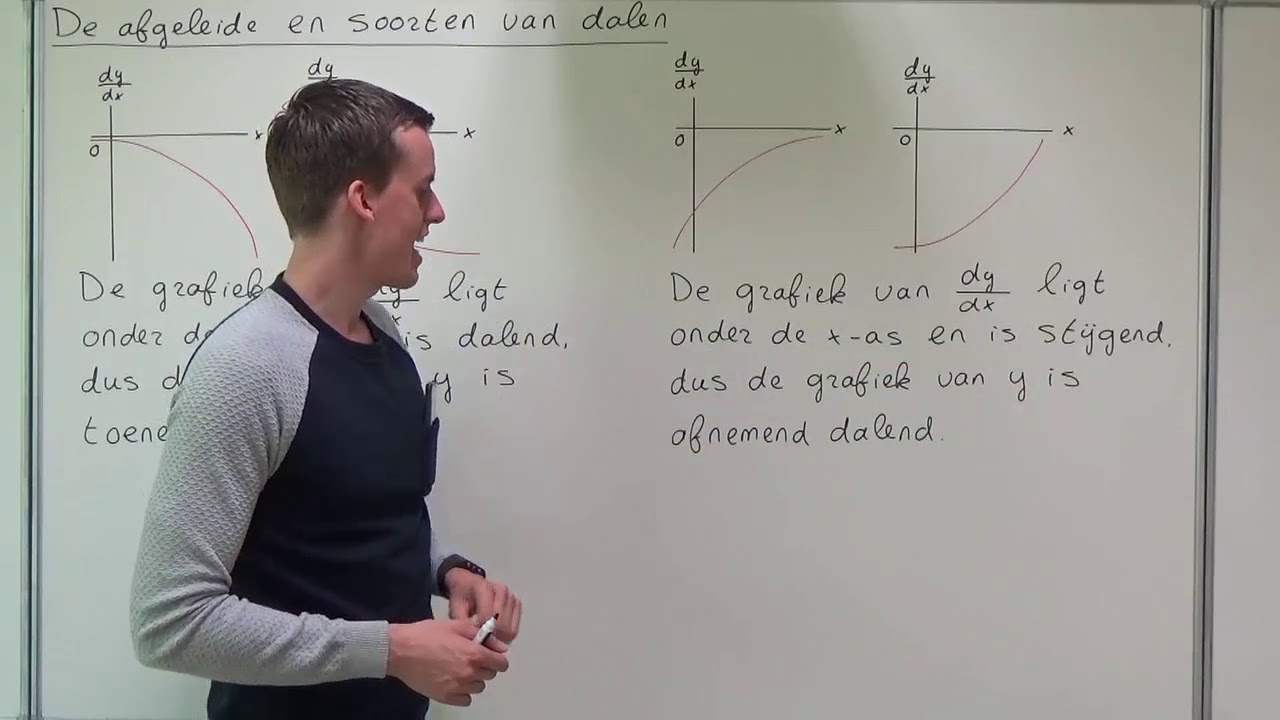 De afgeleide en soorten van dalen
dy
dx
x
0
dy
x
dy
dx
x
0
dy
dx
x
0
De grafiek dy ligt
onder de is dalend,
dus y is
De grafiek van dy/dx ligt
onder de x-as en is stijgend,
dus de grafiek van y is
afnemend dalend.